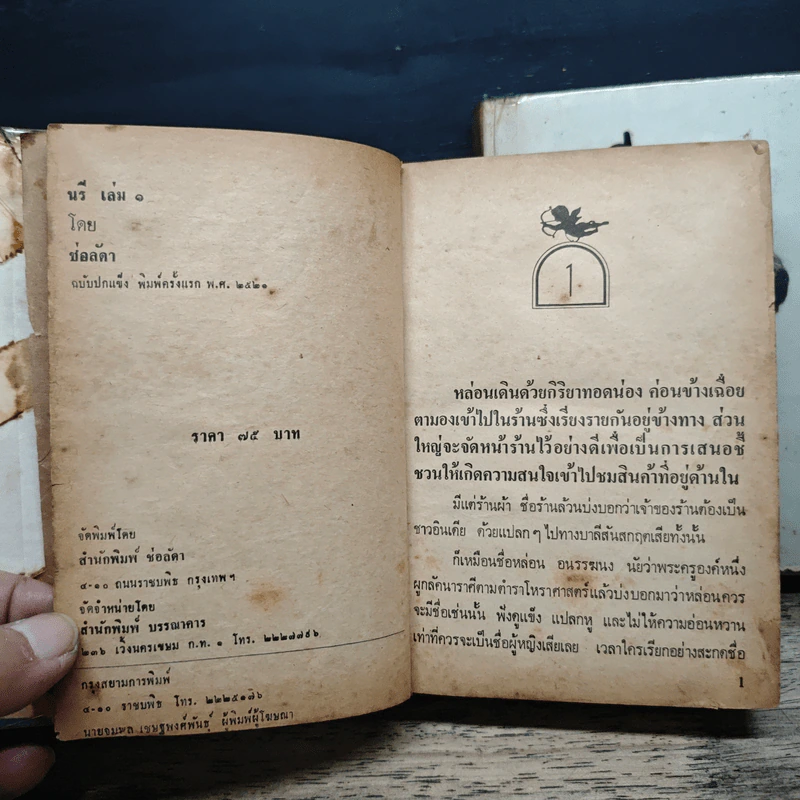 นรี เล่ม ๑
โดย
ช่อลัดา
ฉบับปกแข็ง พิมพ์ครั้งแรก พ.ศ. ๒๕๒๑
ราคา ๗๕ บาท
จัดพิมพ์โดย
สำนักพิมพ์ ช่อลัดา
๔-๑๐ ถนนราชบพิธ กรุงเทพฯ
จัดจำหน่ายโดย
สำนักพิมพ์ บรรณาคาร
๒๓๖ เวิ้งนครเขษม ก.ท. ๑ โทร. ๒๒๒๗๗๙๖
กรุงสยามการพิมพ์
๔-๑๐ ราชบพิธ โทร. ๒๒๕๑๗๖
นายจมพล เชษฐพงศ์พันธุ์ ผู้พิมพ์ผู้โฆษณา
1
หล่อนเดินด้วยกิริยาทอดน่อง ค่อนข้างเฉื่อย
ตามองเข้าไปในร้านซึ่งเรียงรายกันอยู่ข้างทาง ส่วน
ใหญ่จะจัดหน้าร้านไว้อย่างดีเพื่อเป็นการเสนอชี้
ชวนให้เกิดความสนใจเข้าไปชมสินค้าที่อยู่ด้านใน
มีแต่ร้านผ้า ชื่อร้านล้วนบ่งบอกว่าเจ้าของร้านต้องเป็น
ชาวอินเดีย ด้วยแปลกๆ ไปทางบาลีสันสกฤตเสียทั้งนั้น
ก็เหมือนชื่อหล่อน อนรรฆนง นัยว่าพระครูองค์หนึ่ง
ผูกลัคนาราศีตามตำราโหราศาสตร์แล้วบ่งบอกมาว่าหล่อนควร
จะมีชื่อเช่นนั้น ฟังดูแข็ง แปลกหู และไม่ให้ความอ่อนหวาน
เท่าที่ควรจะเป็นชื่อผู้หญิงเสียเลย เวลาใครเรียกอย่างสะกดชื่อ
1